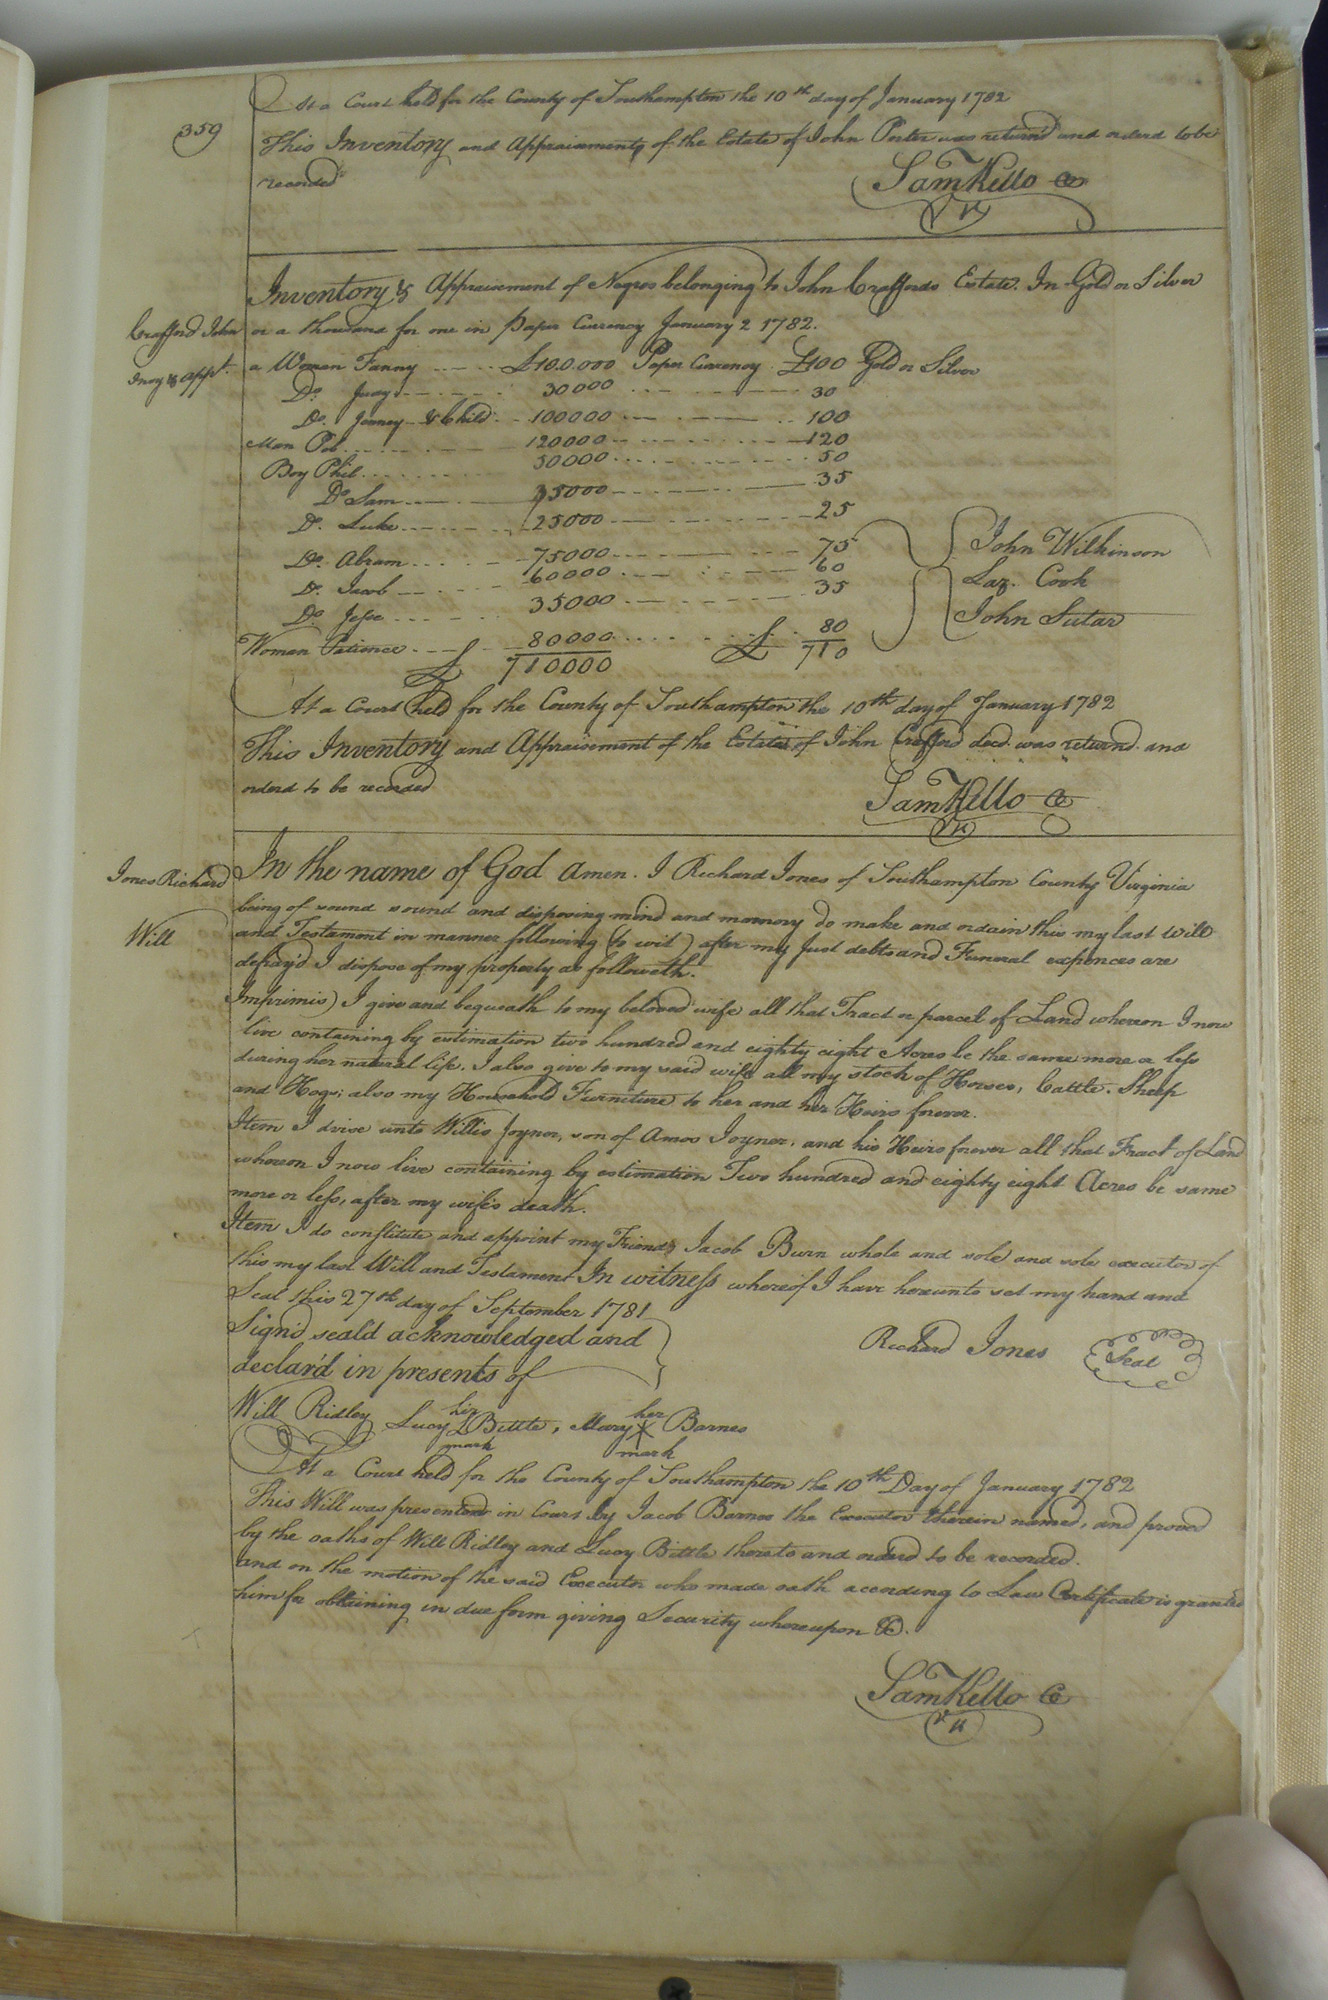 359
At a Court held for the County of Southampton the 10th day of January 1782
This Inventory and Appraisement, of the Estate of John Porter was returnd and orderd to be
recorded
Sam Kello Cl
Inventory & Appraisement of Negros belonging to John Craffords Estate. In Gold or Silver
Crafford John
or a thousand for one in Paper Currency January 2 1782.
Invy & Appt.
a Woman Fanny £100.000 Paper Currency £100 Gold or Silver
Do. Judy 30000 30
Do. Jenney & Child 100000 100
Man 120000 120
Boy Phil 50000 50
Do Sam 35000 35
Do. Luke 25000 25
Do. Abram 75000 75
Do. Jacob 60000 60
Do. Jesse 35000 35
Woman Patience 80000 £ 80
£ 710000 £ 710
John Wilkinson
Laz. Cook
John Sutar
At a Court held for the County of Southampton the 10th day of January 1782
This Inventory and Appraisement of the Estate of John Crafford decd. was returnd and
orderd to be recorded
Sam Kello Cl
Jones Richard
Will
In the name of God Amen. I Richard Jones of Southampton County Virginia
being of sound sound and disposing mind and memory do make and ordain this my last will
and Testament in manner following (to wit) after my just debts and Funeral expences are
defray'd I dispose of my property as followeth.
Imprimis) I give and bequeath to my beloved wife all that Tract or parcel of Land whereon I now
live containing by estimation two hundred and eighty eight Acres be the same more or less
during her natural life, I also give to my said wife all my stock of Horses, Cattle, Sheep
and Hogs; also my Household Furniture to her and her Heirs forever.
Item I dvise unto Willis Joyner, son of Amos Joyner, and his Heirs forever all that Tract of Land
whereon I now live containing by estimation Two hundred and eighty eight Acres be same
more or less, after my wife's death.
Item I do constitute and appoint my Friend Jacob Burn whole and sole and sole executor of
this my last Will and Testament In witness whereof I have hereunto set my hand and
Seal this 27th day of September 1781
Sign'd seald acknowledged and
declar'd in presents of
Richard Jones Seal
Will Ridley Lucy her mark Bittle, Mary her mark Barnes
At a Court held for the County of Southampton the 10th Day of January 1782
This Will was presented in Court by Jacob Barnes the Executor therein named, and proved
by the oaths of Will Ridley and Lucy Bittle thereto and orderd to be recorded.
and on the motion of the said Executor who made oath according to Law Certificate is granted
him for obtaining in due form giving Security whereupon &c.
Sam Kello Cl